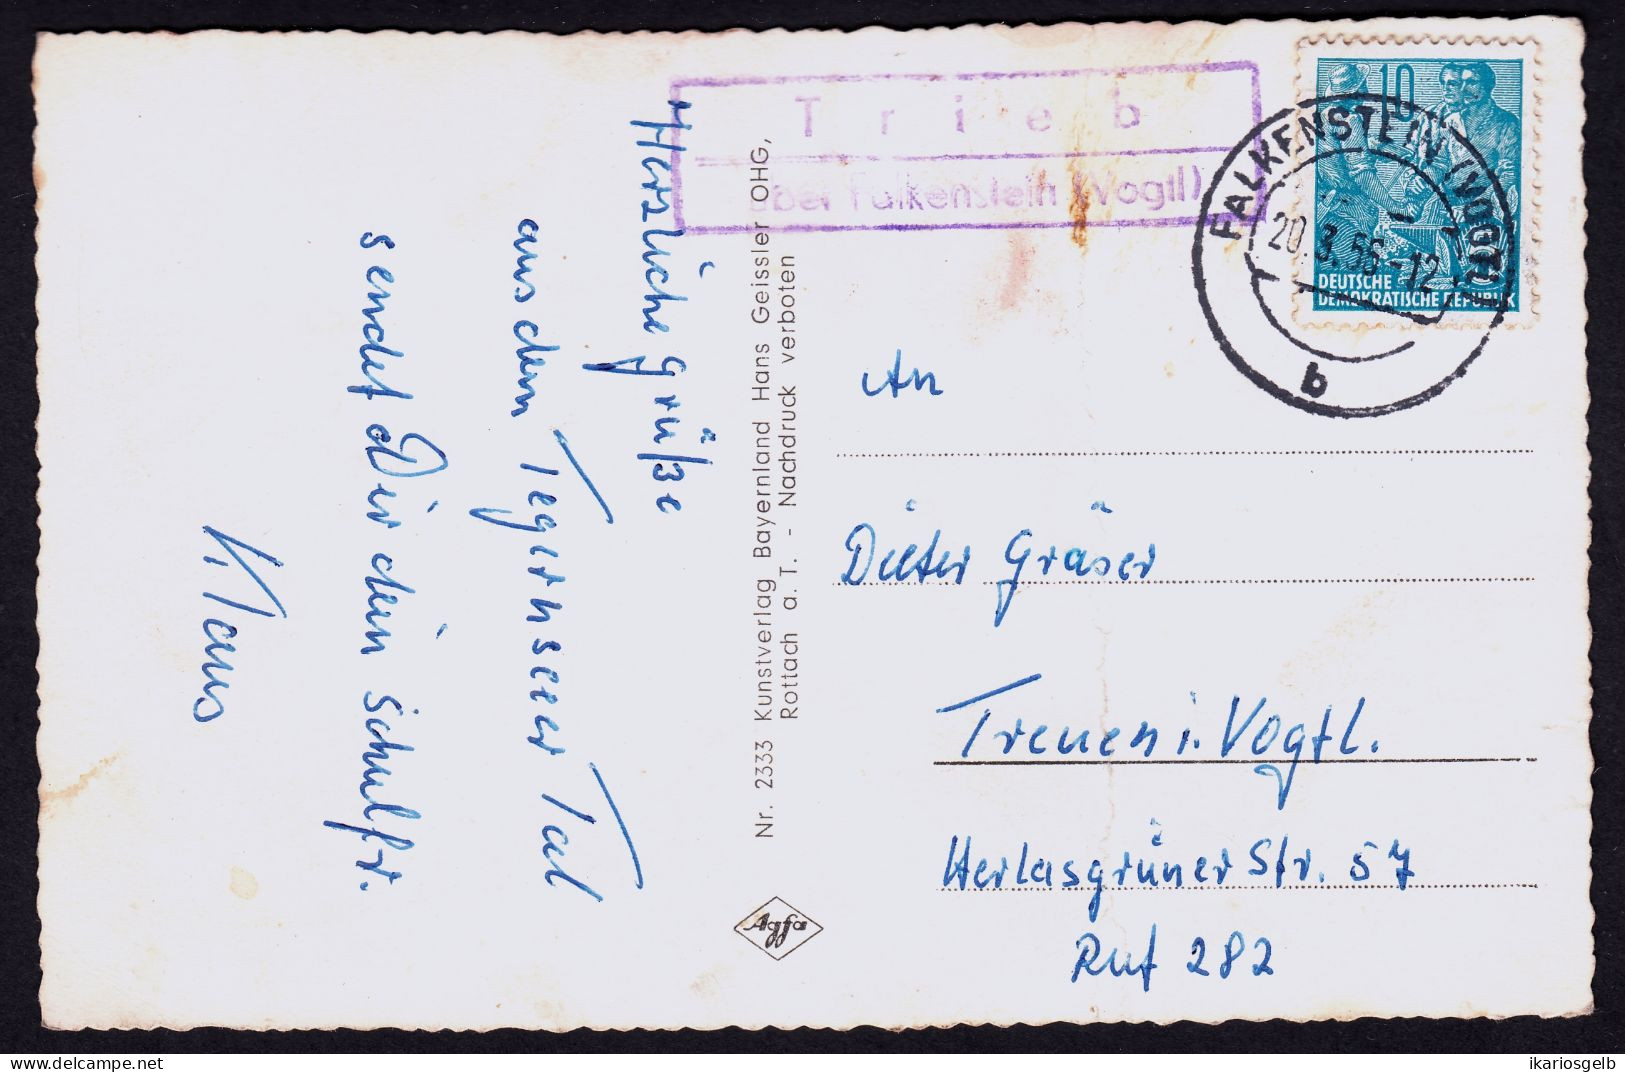 Herzliche Grüße
aus dem Tegernseer Tal
sendet Dir dein Schulfr.
Klaus
Nr. 2333 Kunstverlag Bayernland Hans Geissler OHG,
Rottach a. T. - Nachdruck verboten
Agfa
Trieb
über Falkenstein (Vogtl)
10
DEUTSCHE
DEMOKRATISCHE REPUBLIK
FALKENSTEIN (VOGTL)
20.3.56-12
b
An
Dieter Gräser
Treuen i. Vogtl.
Herlasgrüner Str. 57
Ruf 282
the-world-collectors.net
ikariosgelb